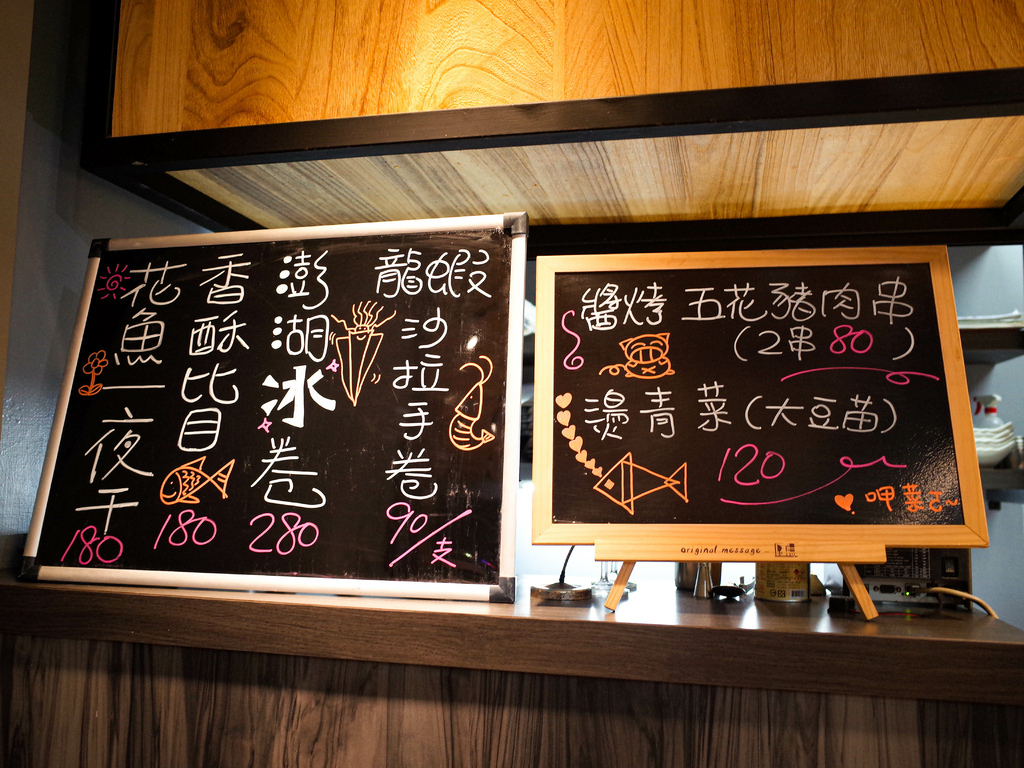 龍蝦
沙拉手卷
90/支
澎湖冰卷
280
香酥比目
180
花魚一夜干
180
醬烤 五花豬肉串
(2串80)
燙青菜(大豆苗)
120
呷菜ㄛ~
original message